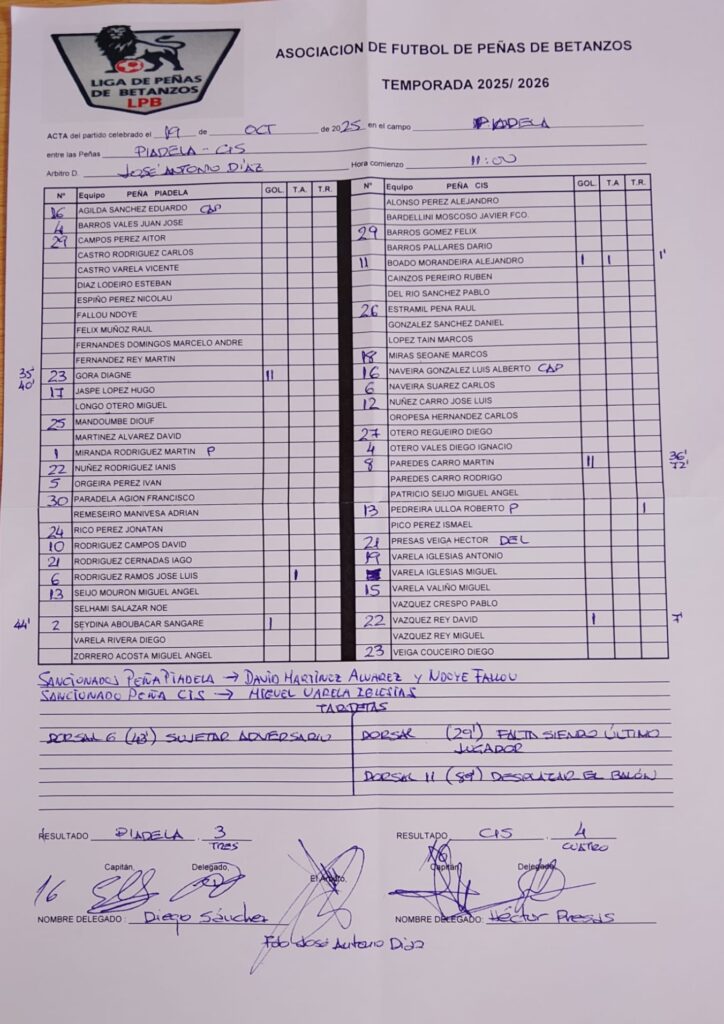 LIGA DE PEÑAS
DE BETANZOS
LPB
ASOCIACION DE FUTBOL DE PEÑAS DE BETANZOS
TEMPORADA 2025/ 2026
ACTA del partido celebrado el 19 de OCT de 2025 en el campo PIADELA
entre las Peñas PIADELA - CIS
Arbitro D. JOSÉ ANTONIO DÍAZ Hora comienzo 11:00
Nº Equipo PEÑA PIADELA GOL. T.A. T.R.
16 AGILDA SANCHEZ EDUARDO CAP
4 BARROS VALES JUAN JOSE
29 CAMPOS PEREZ AITOR
CASTRO RODRIGUEZ CARLOS
CASTRO VARELA VICENTE
DIAZ LODEIRO ESTEBAN
ESPIÑO PEREZ NICOLAU
FALLOU NDOYE
FELIX MUÑOZ RAUL
FERNANDES DOMINGOS MARCELO ANDRE
FERNANDEZ REY MARTIN
35' 40' 23 GORA DIAGNE II
17 JASPE LOPEZ HUGO
LONGO OTERO MIGUEL
25 MANDOUMBE DIOUF
MARTINEZ ALVAREZ DAVID
1 MIRANDA RODRIGUEZ MARTIN P
22 NUÑEZ RODRIGUEZ IANIS
5 ORGEIRA PEREZ IVAN
30 PARADELA AGION FRANCISCO
REMESEIRO MANIVESA ADRIAN
24 RICO PEREZ JONATAN
10 RODRIGUEZ CAMPOS DAVID
21 RODRIGUEZ CERNADAS IAGO
6 RODRIGUEZ RAMOS JOSE LUIS I
13 SEIJO MOURON MIGUEL ANGEL
SELHAMI SALAZAR NOE
44' 2 SEYDINA ABOUBACAR SANGARE I
VARELA RIVERA DIEGO
ZORRERO ACOSTA MIGUEL ANGEL
Nº Equipo PEÑA CIS GOL. T.A T.R.
ALONSO PEREZ ALEJANDRO
BARDELLINI MOSCOSO JAVIER FCO.
29 BARROS GOMEZ FELIX
BARROS PALLARES DARIO
11 BOADO MORANDEIRA ALEJANDRO I I 1'
CAINZOS PEREIRO RUBEN
DEL RIO SANCHEZ PABLO
26 ESTRAMIL PENA RAUL
GONZALEZ SANCHEZ DANIEL
LOPEZ TAIN MARCOS
18 MIRAS SEOANE MARCOS
16 NAVEIRA GONZALEZ LUIS ALBERTO CAP
6 NAVEIRA SUAREZ CARLOS
12 NUÑEZ CARRO JOSE LUIS
OROPESA HERNANDEZ CARLOS
27 OTERO REGUEIRO DIEGO
4 OTERO VALES DIEGO IGNACIO
8 PAREDES CARRO MARTIN II 36' 72'
PAREDES CARRO RODRIGO
PATRICIO SEIJO MIGUEL ANGEL
13 PEDREIRA ULLOA ROBERTO P I
PICO PEREZ ISMAEL
21 PRESAS VEIGA HECTOR DEL
19 VARELA IGLESIAS ANTONIO
VARELA IGLESIAS MIGUEL
15 VARELA VALIÑO MIGUEL
VAZQUEZ CRESPO PABLO
22 VAZQUEZ REY DAVID I 7'
VAZQUEZ REY MIGUEL
23 VEIGA COUCEIRO DIEGO
SANCIONADOS PEÑA PIADELA → DAVID MARTÍNEZ ÁLVAREZ Y NDOYE FALLOU
SANCIONADO PEÑA CIS → MIGUEL VARELA IGLESIAS
TARJETAS
DORSAL 6 (43') SUJETAR ADVERSARIO
DORSAL (29') FALTA SIENDO ÚLTIMO
JUGADOR
DORSAL 11 (89') DESPLAZAR EL BALÓN
RESULTADO PIADELA . 3
TRES
RESULTADO CIS . 4
CUATRO
Capitán, Delegado, El Arbitro, Capitán, Delegado,
16
NOMBRE DELEGADO : Diego Sánchez
NOMBRE DELEGADO: Héctor Presas
Fdo José Antonio Díaz